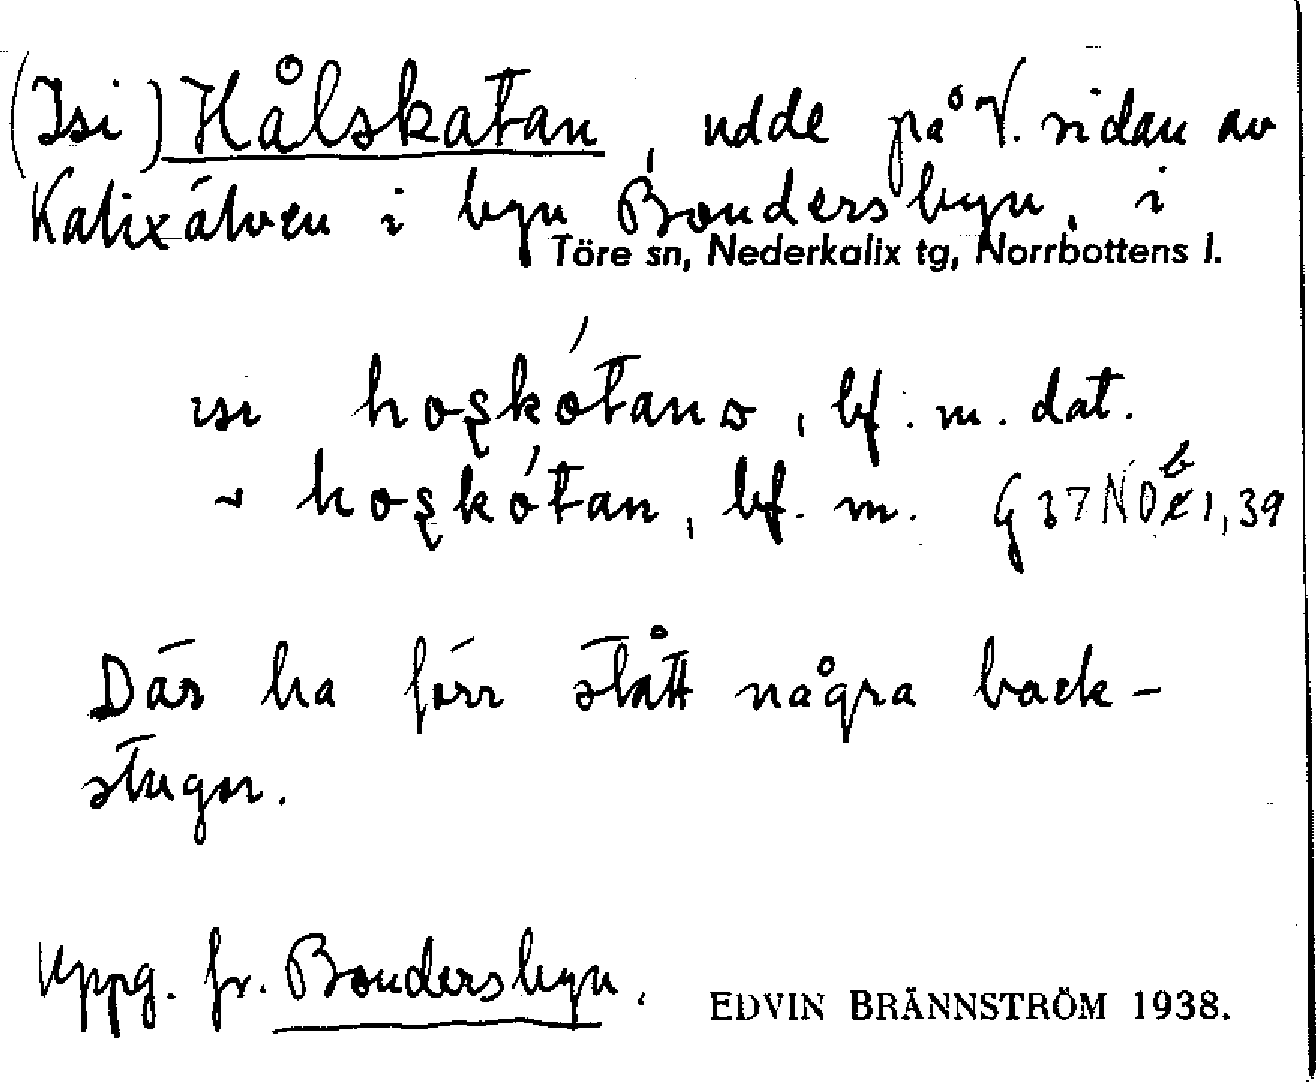 (Isi) Hålskatan, udde på V. sidan av
Kalixälven i byn Bondersbyn, i
Töre sn, Nederkalix tg, Norrbottens l.
bf. m. dat.
bf. m. G 37
Där ha förr stått några back-
stugor.
Uppg. fr. Bondersbyn.
EDVIN BRÄNNSTRÖM 1938.